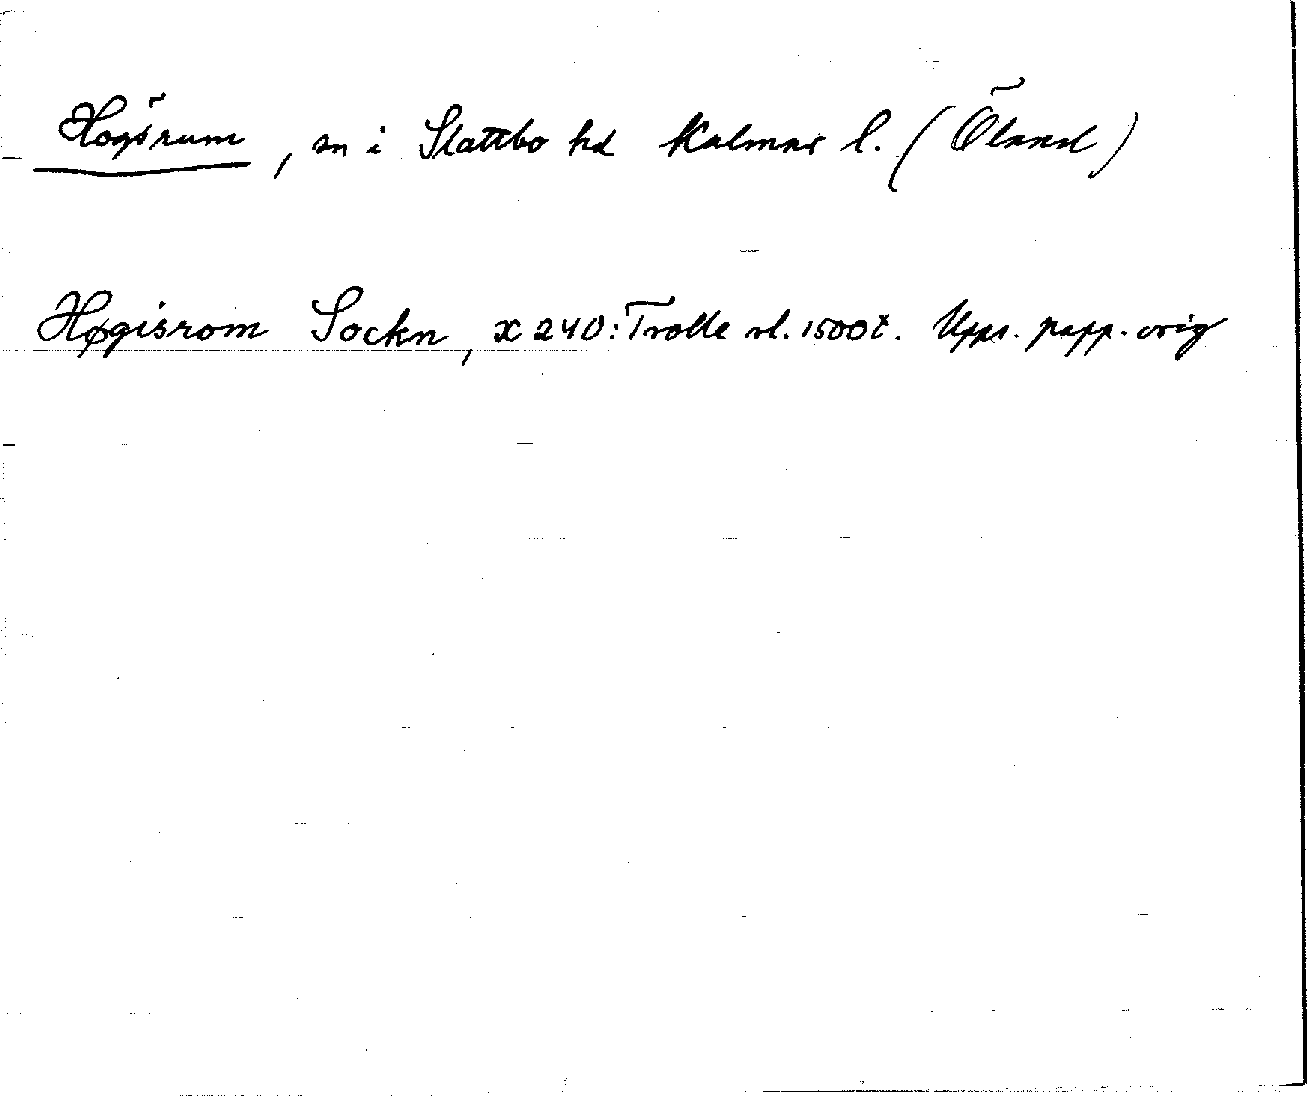 Högsrum, sn i Slättbo hd Kalmar l. (Öland)
Høgisrom Sockn, x 240: Trolle rl. 1500t. Upps. papp. orig